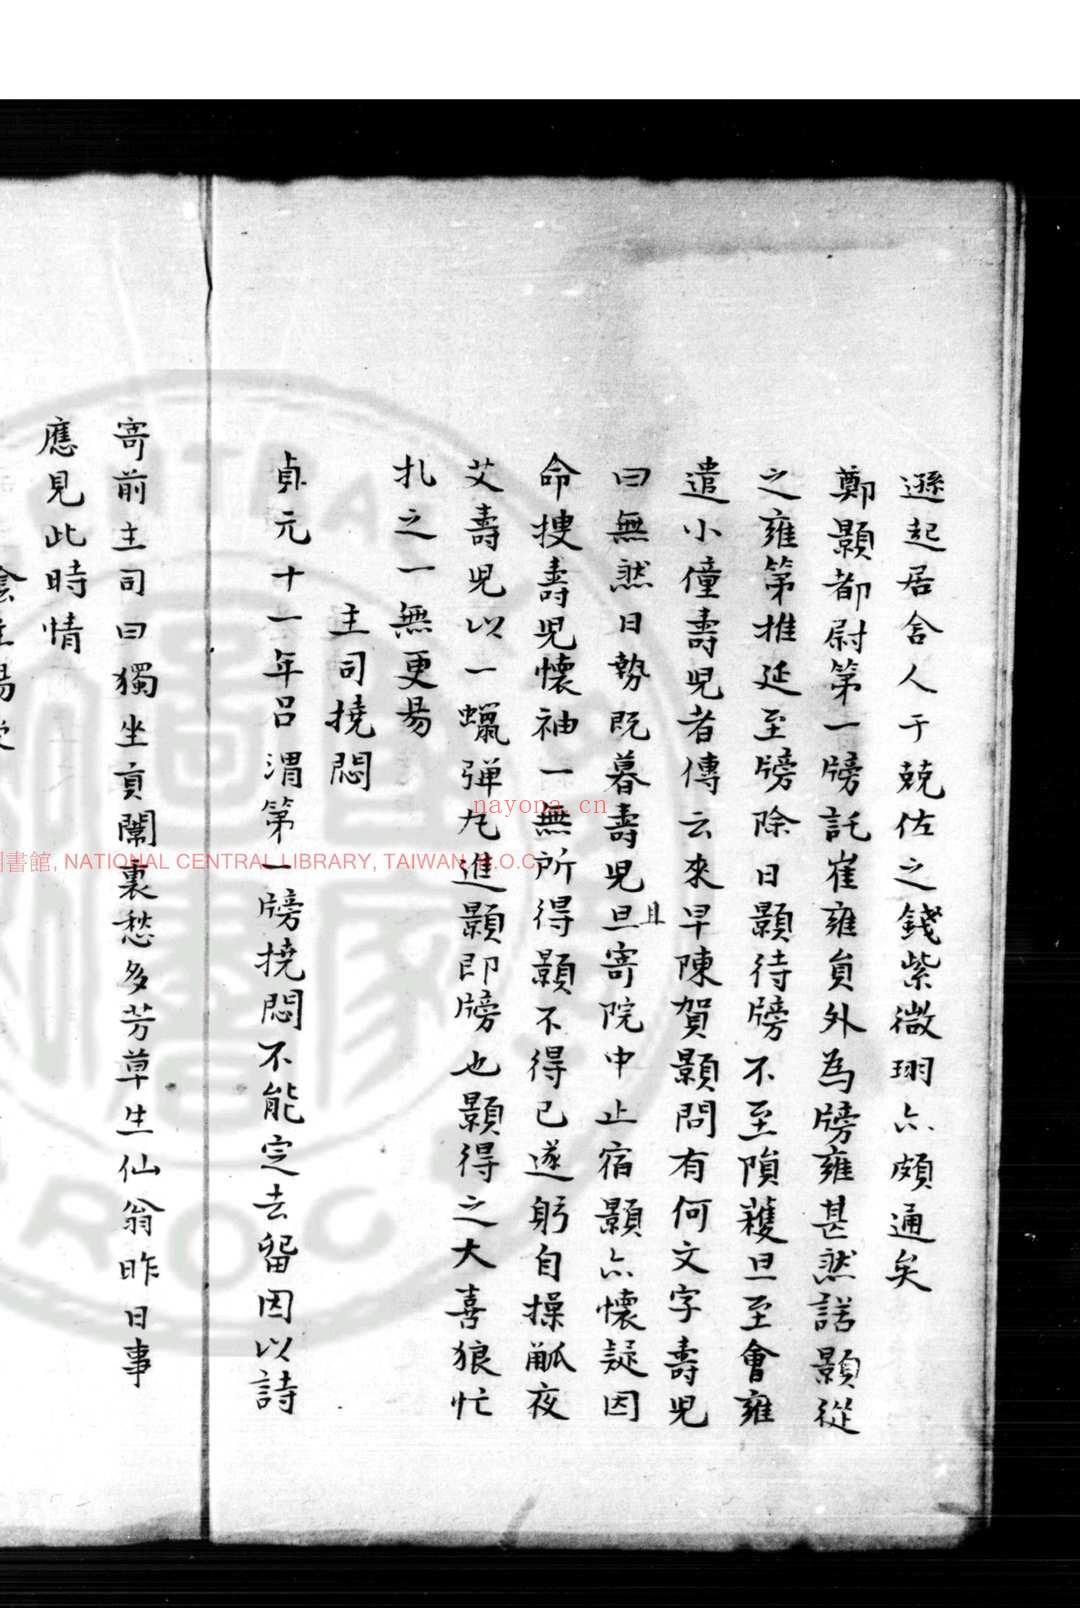 遜起居舍人于兢佐之錢紫微珝亦頗通矣
鄭顥都尉第一牓託崔雍員外為牓雍甚然諾顥從
之雍第推延至牓除日顥待牓不至隕穫旦至會雍
遣小僮壽児者傳云來早陳賀顥問有何文字壽児
曰無然日勢既暮壽児旦寄院中止宿顥亦懷疑因
且
命搜壽児懷袖一無所得顥不得已遂躬自操觚夜
艾壽児以一蠟彈丸進顥即牓也顥得之大喜狼忙
扎之一無更易
主司撓悶
貞元十一年吕渭第一牓撓悶不能定去留因以詩
寄前主司曰獨坐貢闈裏愁多芳草生仙翁昨日事
應見此時情
nayona.cn
書館, NATIONAL CENTRAL LIBRARY, TAIWAN, R.O.C.